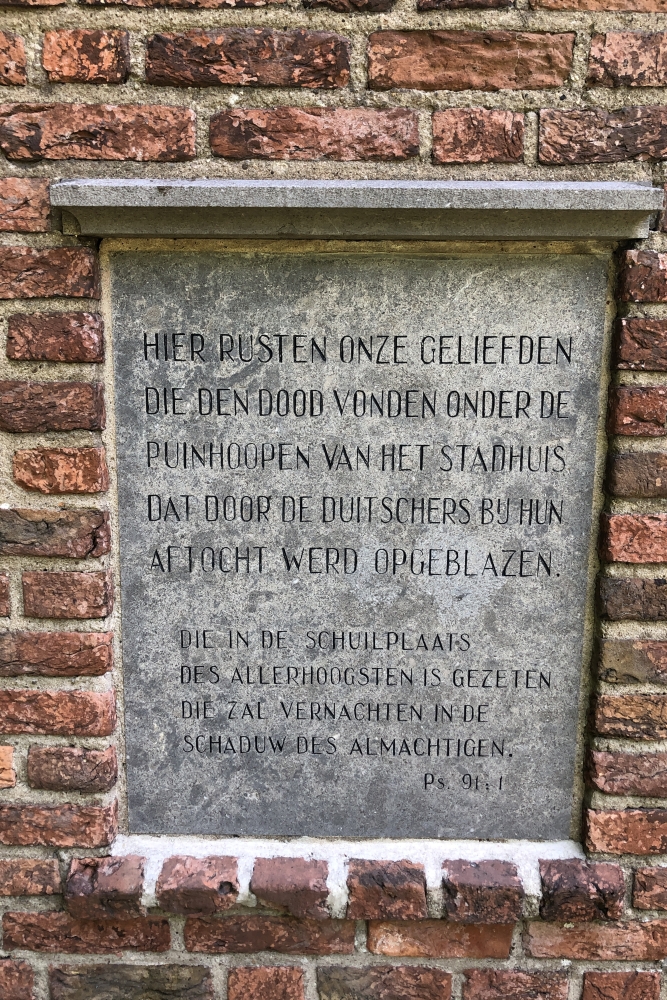 HIER RUSTEN ONZE GELIEFDEN
DIE DEN DOOD VONDEN ONDER DE
PUINHOOPEN VAN HET STADHUIS
DAT DOOR DE DUITSCHERS BIJ HUN
AFTOCHT WERD OPGEBLAZEN.
DIE IN DE SCHUILPLAATS
DES ALLERHOOGSTEN IS GEZETEN
DIE ZAL VERNACHTEN IN DE
SCHADUW DES ALMACHTIGEN.
Ps. 91:1